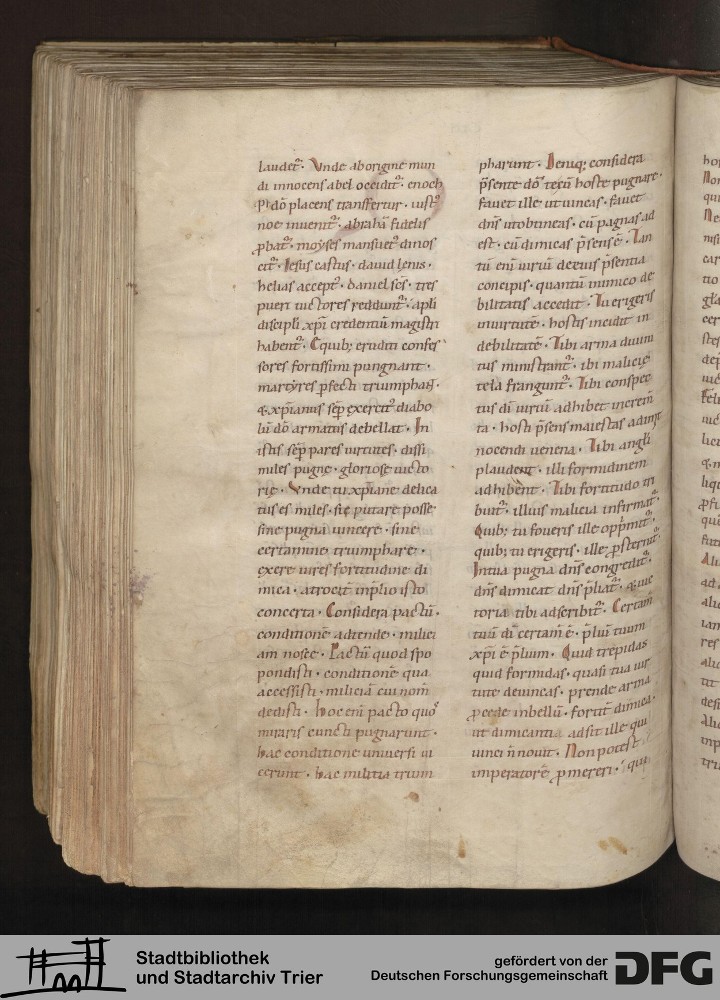 laudet᷑. Vnde ab origine mun
di innocens abel occidit᷑. enoch
placens transfertur. iust᷑
noe inuenit᷑. abrahā fidelis
ꝓbat᷑. moyses mansuet᷑ dinos
cit᷑. Iesus castus. dauid lenis.
helias accept᷑. daniel sc̄s. tres
pueri uictores reddunt᷑. apl̄i
discipl̄i xp̄i credentiū magistri
habent᷑. quib; eruditi confes
sores fortissimi pungnant.
martyres ꝑfecti triumphaꝭ.
& xp̄ianus sēp exercit᷑ diabo
lū dō armatus debellat. In
istis sēp pares uirtutes. dissi
miles pugnę. gloriosę uicto
rię. Vnde tu xp̄iane delica
tus es miles. si te putare posse
sine pugna uincere. sine
certamine triumphare.
exere uires fortitudine di
mica. atrocit̄ in p̄lio isto
concerta. Considera pactū.
conditionē adtende. milici
am nosce. Pactū quod spo
pondisti. conditionē qua
accessisti. miliciā cui nom̄
dedisti. Hoc eni pacto quoˢ
miraris cuncti pugnarunt.
hac conditione uniuersi ui
cerunt. hac militia trium
pharunt. Deniq; considera
p̄sente dō tecū hoste pugnare.
fauet ille ut uincas. fauet
dn̄s ut obtineas. cū pugnas ad
est. cū dimicas p̄sens ē. Tan
tū eni uirtū de eius p̄sentia
concipis. quantū inimico de
bilitatis accedit. Tu erigeris
in uirtutē. hostis incidit in
debilitatē. Tibi arma diuini
tus ministrant᷑. ibi malicię
tela frangunt᷑. Tibi conspec
tus dī uirtū adhibet increm̄
ta. hosti p̄sens maiestas adimit
nocendi uenena. Tibi angl̄i
plaudent. illi formidinem
adhibent. Tibi fortitudo tri
buit᷑. illius malicia infirmat᷑.
Quib; tu foueris ille opp̄mit᷑.
quib; tu erigeris. ille ꝓsternit᷑.
In tua pugna dn̄s congredit᷑.
dn̄s dimicat dn̄s p̄liat᷑. & uic
toria tibi adscribit᷑. Certam̄
tuū dī certam̄ ē. p̄liū tuum
xp̄i ē p̄lium. Quid trepidas
quid formidas. quasi tua uir
tute deuincas. prende arma
ꝓcede in bellū. fortit̄ dimica.
ut dimicanti adsit ille qui
uinci n̄ nouit. Non potest
imperatorē ꝓmereri. qui
Stadtbibliothek
und Stadtarchiv Trier
gefördert von der
Deutschen Forschungsgemeinschaft
DFG